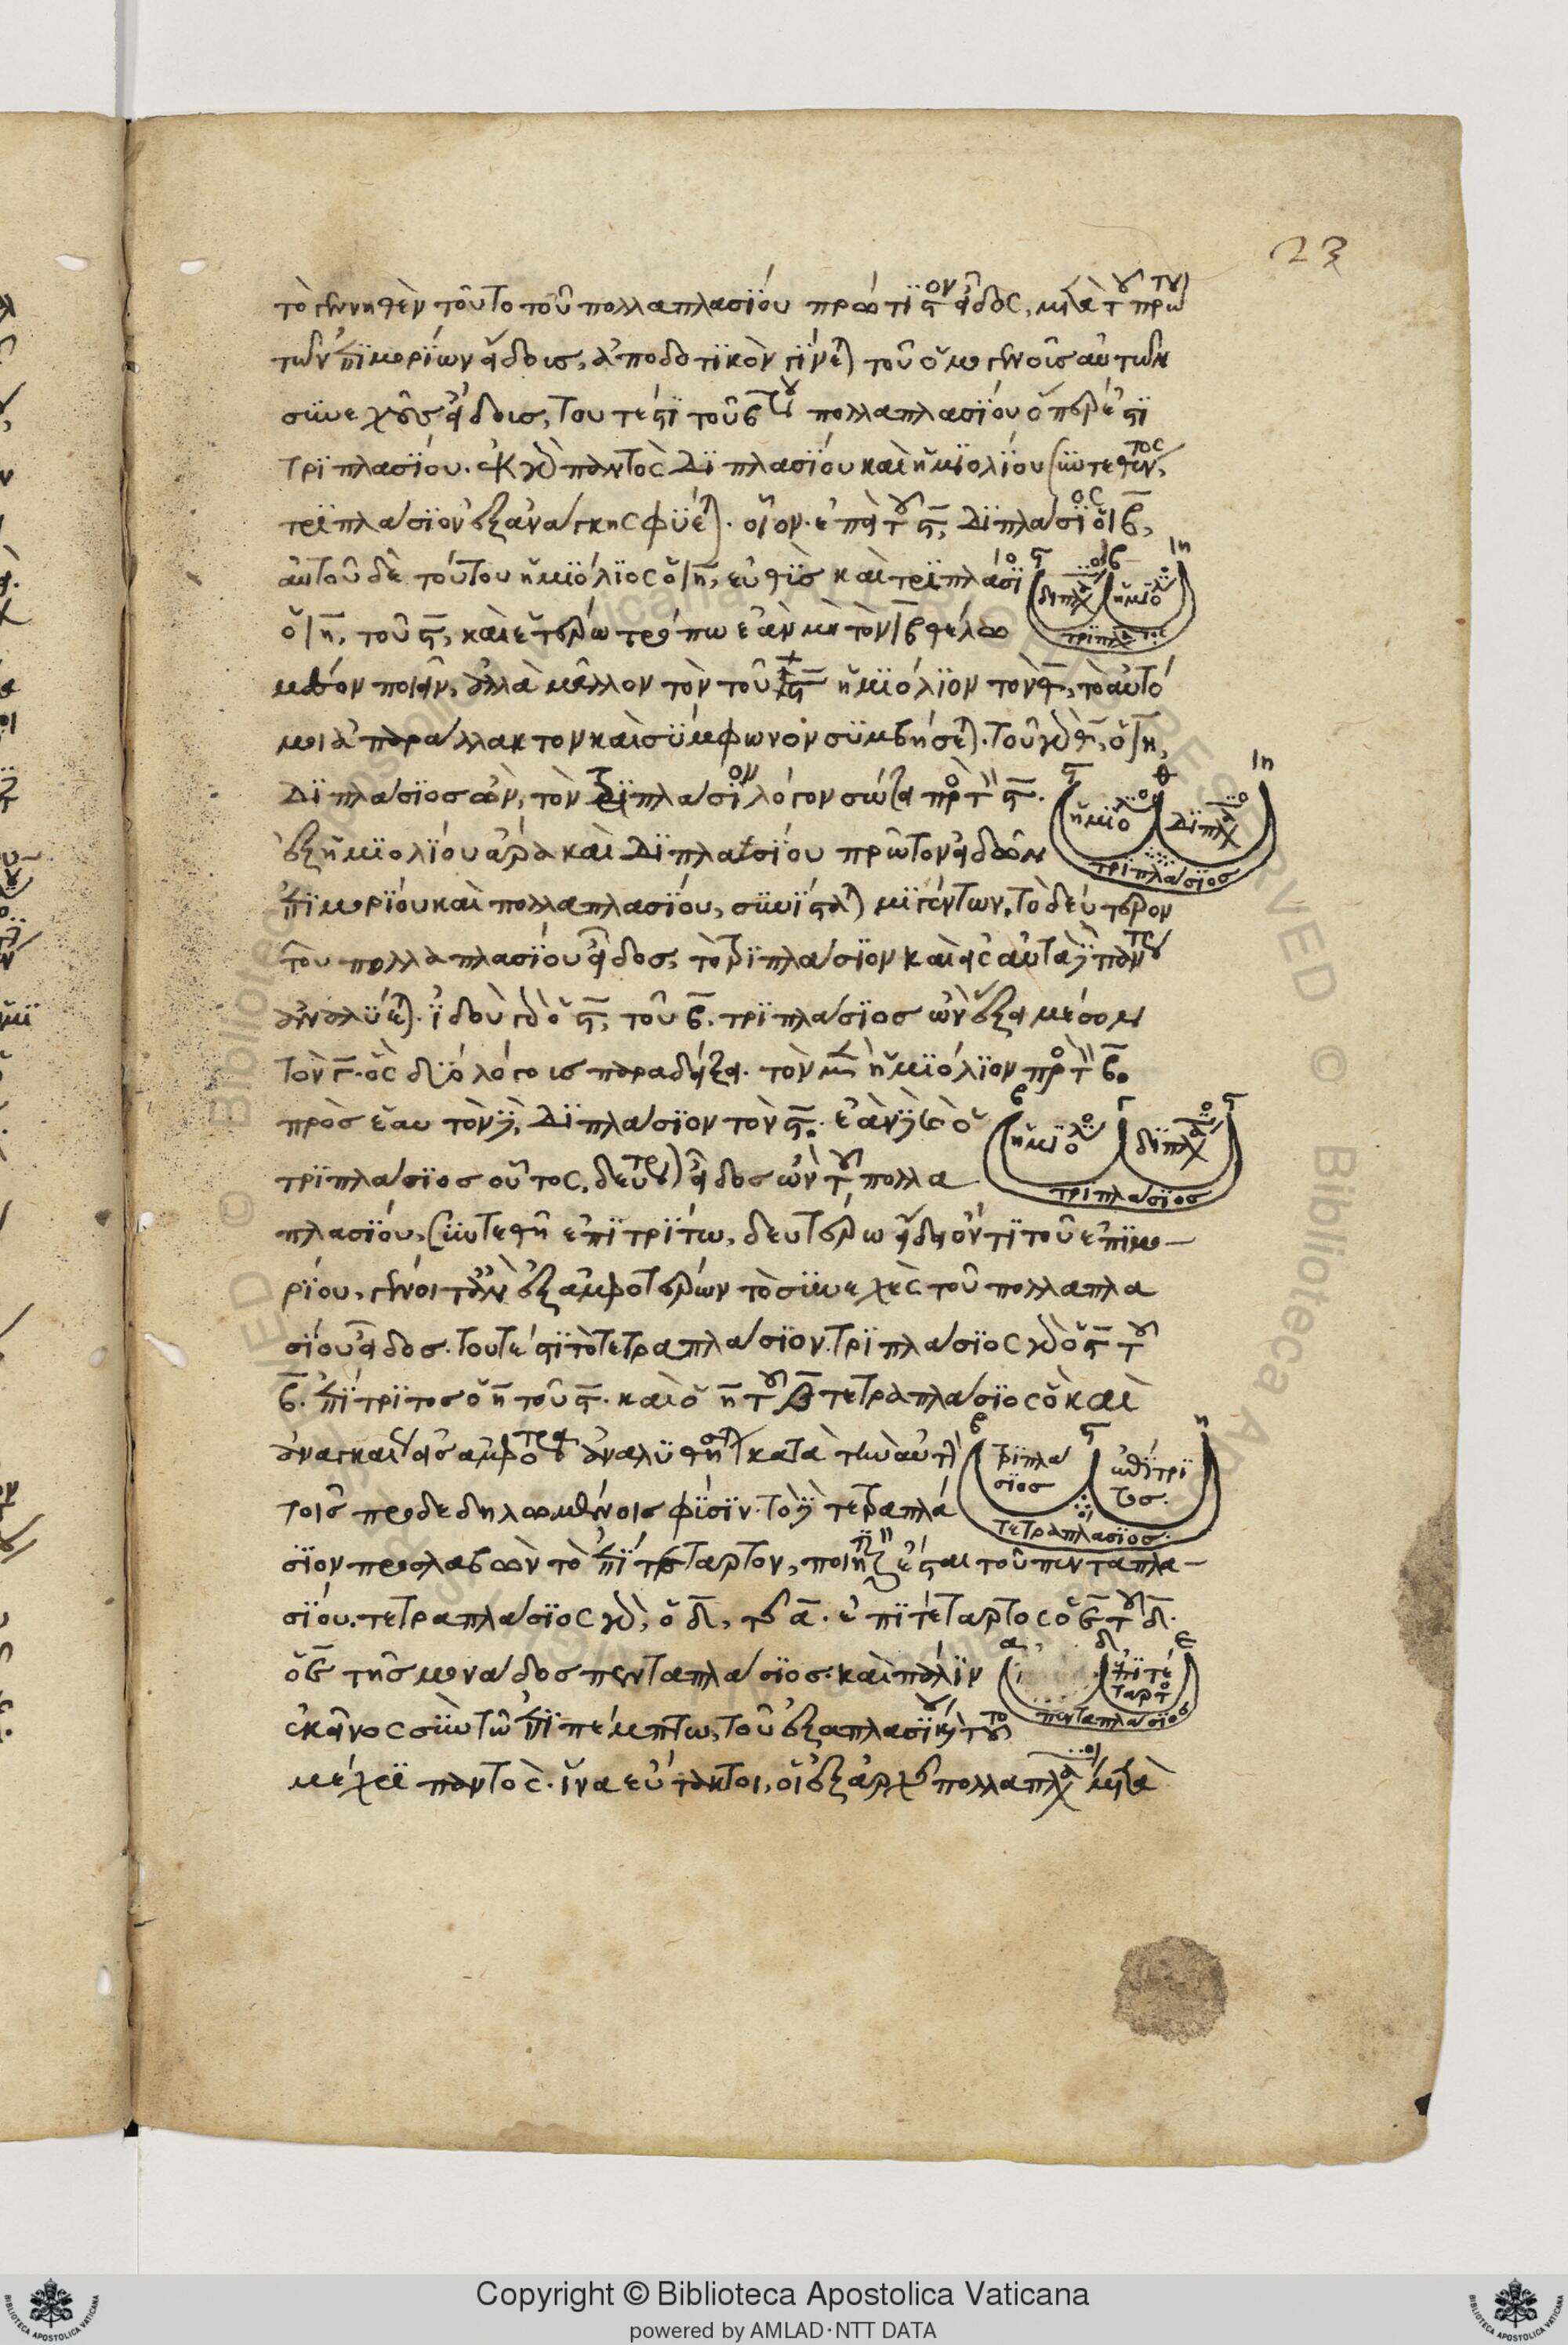 23
τὸ γεννηθὲν τοῦτο τοῦ πολλαπλασίου πρώτιστον εἶδος, μετὰ τοῦ πρώτου
τῶν ἐπιμορίων εἴδους, ἀποδοτικὸν γίνεται τοῦ ὁμογενοῦς αὐτῶν
συνεχοῦς εἴδους, τουτέστι τοῦ βου πολλαπλασίου ὅπερ ἐστὶ
τριπλασίου. ἐκ γὰρ παντὸς διπλασίου καὶ ἡμιολίου συντεθέντος,
τριπλάσιον ἐξ ἀνάγκης φύεται. οἷον. ἐπεὶ τοῦ ϛ, διπλάσιος ὁ ιβ,
αὐτοῦ δὲ τούτου ἡμιόλιος ὁ ιη, εὐθὺς καὶ τριπλάσιο
ὁ ιη, τοῦ ϛ, καὶ ἑτέρω τρόπω ἐὰν μὴ τὸν ιβ θέλω
μέσον ποιεῖν, ἀλλὰ μᾶλλον τὸν τοῦ ϛ ἡμιόλιον τὸν θ, τὸ αὐτό
μοι ἀπαράλλακτον καὶ σύμφωνον συμβήσεται. τοῦ γὰρ θ, ὁ ιη,
διπλάσιος ὢν, τὸν τριπλάσιον λόγον σώζει πρὸς τὸν ϛ.
ἐξ ἡμιολίου ἄρα καὶ διπλασίου πρώτων εἰδῶν
ἐπιμορίου καὶ πολλαπλασίου, συνίσταται μιγέντων, τὸ δεύτερον
τοῦ πολλαπλασίου εἶδος, τὸ τριπλάσιον καὶ εἰς αὐτὰ πάντως
ἀναλύεται. ἰδοὺ γὰρ ὁ ϛ, τοῦ β. τριπλάσιος ὢν ἕξει μέσον
τὸν γ. ὃς δύο λόγους παραδείξει. τὸν μὲν ἡμιόλιον πρὸς τὸν β.
πρὸς ἑαυτὸν δὲ, διπλάσιον τὸν ϛ. ἐὰν δὲ ὁ
τριπλάσιος οὗτος, δεύτερον εἶδος ὢν τοῦ πολλα
πλασίου, συντεθῆ ἐπιτρίτω, δευτέρω εἴδει ὄντι τοῦ ἐπιμο
ρίου, γένοιτ' ἂν ἐξ ἀμφοτέρων τὸ συνεχὲς τοῦ πολλαπλα
σίου εἶδος. τουτέστι τὸ τετραπλάσιον. τριπλάσιος γὰρ ὁ ϛ τοῦ
β. ἐπίτριτος ὁ η τοῦ ϛ. καὶ ὁ η τοῦ β τετραπλάσιος ὃ καὶ
ἀναγκαίως εἰς ἀμφότερα ἀναλυθήσεται κατὰ τὴν αὐτὴν
τοῖς προδεδηλωμένοις φύσιν. τὸ δὲ τετραπλά
σιον προσλαβὼν τὸ ἐπιτέταρτον, ποιητικὸν ἔσται τοῦ πενταπλα
σίου. τετραπλάσιος γὰρ, ὁ δ, τοῦ α. ἐπιτέταρτος ὁ ε τοῦ δ.
ὁ ε τῆς μονάδος πενταπλάσιος. καὶ πάλιν
ἐκεῖνος σὺν τῶ ἐπιπέμπτω, τοῦ ἑξαπλασίου καὶ τοῦτο
μέχρι παντὸς. ἵνα εὔτακτοι, οἱ ἐξ ἀρχῆς πολλαπλάσιοι μετὰ
ϛ ιβ ιη
διπλάσιο ἡμιόλιο
ϛ θ ιη
ἡμιόλιο διπλάσιο
τριπλάσιος
β γ ϛ
ἡμιόλιο διπλάσιο
τριπλάσιος
β ϛ η
τριπλά
σιος
ἐπίτρι
τος.
τετραπλάσιος.
α δ ε
ἐπιτέ
ταρτο
πενταπλάσιος
Copyright © Biblioteca Apostolica Vaticana
powered by AMLAD·NTT DATA